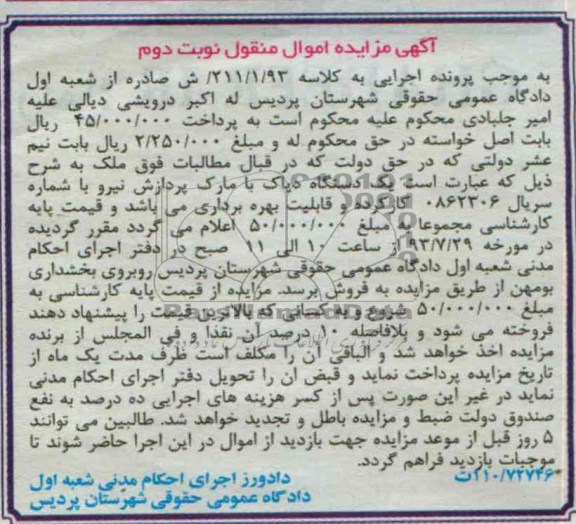 آگهی مزایده اموال منقول نوبت دوم
به موجب پرونده اجرایی به کلاسه ۲۱۱/۱/۹۳/ ش صادره از شعبه اول
دادگاه عمومی حقوقی شهرستان پردیس له اکبر درویشی دیالی علیه
امیر جلبادی محکوم علیه محکوم است به پرداخت ۴۵/۰۰۰/۰۰۰ ریال
بابت اصل خواسته در حق محکوم له و مبلغ ۲/۲۵۰/۰۰۰ ریال بابت نیم
عشر دولتی که در حق دولت که در قبال مطالبات فوق ملک به شرح
ذیل که عبارت است یک دستگاه دایاک با مارک پردازش نیرو با شماره
سریال ۰۸۶۲۳۰۶ کارکرده و قابلیت بهره برداری می باشد و قیمت پایه
کارشناسی مجموعا به مبلغ ۵۰/۰۰۰/۰۰۰ اعلام می گردد مقرر گردیده
در مورخه ۹۳/۷/۲۹ از ساعت ۱۰ الی ۱۱ صبح در دفتر اجرای احکام
مدنی شعبه اول دادگاه عمومی حقوقی شهرستان پردیس روبروی بخشداری
بومهن از طریق مزایده به فروش برسد. مزایده از قیمت پایه کارشناسی به
مبلغ ۵۰/۰۰۰/۰۰۰ شروع و به کسانی که بالاترین قیمت را پیشنهاد دهند
فروخته می شود و بلافاصله ۱۰ درصد آن نقدا و فی المجلس از برنده
مزایده اخذ خواهد شد و الباقی آن را مکلف است ظرف مدت یک ماه از
تاریخ مزایده پرداخت نماید و قبض آن را تحویل دفتر اجرای احکام مدنی
نماید در غیر این صورت پس از کسر هزینه های اجرایی ده درصد به نفع
صندوق دولت ضبط و مزایده باطل و تجدید خواهد شد. طالبین می توانند
۵ روز قبل از موعد مزایده جهت بازدید از اموال در این اجرا حاضر شوند تا
موجبات بازدید فراهم گردد.
۱۱۰/۷۲۷۴۶ت
دادورز اجرای احکام مدنی شعبه اول
دادگاه عمومی حقوقی شهرستان پردیس